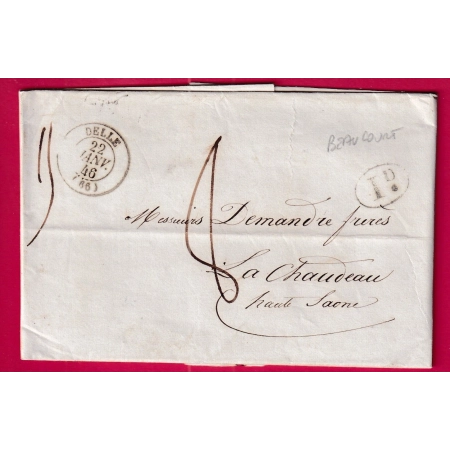 DELLE
22
JANV.
46
(66)
BEAUCOURT
1 D.
Messieurs Demandre freres
La Chaudeau
haute Saone